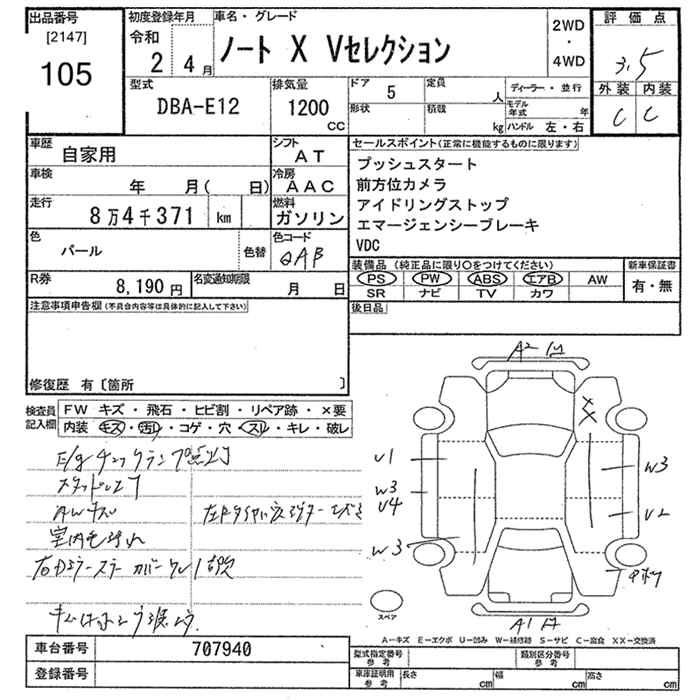 出品番号
[2147]
105
初度登録年月
令和
2 4月
車名・グレード
ノート X Vセレクション
2WD
・
4WD
評価点
3.5
外装 内装
C C
型式
DBA-E12
排気量
1200
CC
ドア 5
定員 人
形状
積載 kg
ディーラー・並行
モデル年式 年
ハンドル 左・右
車歴
自家用
シフト
AT
車検
年 月( 日)
冷房
AAC
走行
8万4千371 km
燃料
ガソリン
色
パール
色替
色コード
QAB
R券
8,190円
名変通知期限
月 日
セールスポイント(正常に機能するものに限ります)
プッシュスタート
前方位カメラ
アイドリングストップ
エマージェンシーブレーキ
VDC
装備品(純正品に限り〇をつけてください)
PS PW ABS エアB AW
SR ナビ TV カワ
新車保証書
有・無
後日品
注意事項申告欄(不具合内容等は具体的に記入して下さい)
修復歴 有〔箇所 〕
検査員記入欄
FW キズ・飛石・ヒビ割・リペア跡・×要
内装 キズ・汚レ・コゲ・穴・スレ・キレ・破レ
E/gチェックランプ点灯
AWキズ
室内毛汚れ
A2
U1
W3
U4
W3
W3
U2
XX
A1
スペア
A−キズ E−エクボ U−凹み W−補修跡 S−サビ C−腐食 XX−交換済
車台番号
707940
登録番号
型式指定番号
参考
類別区分番号
参考
車庫証明用
参考
長さ cm
幅 cm
高さ cm